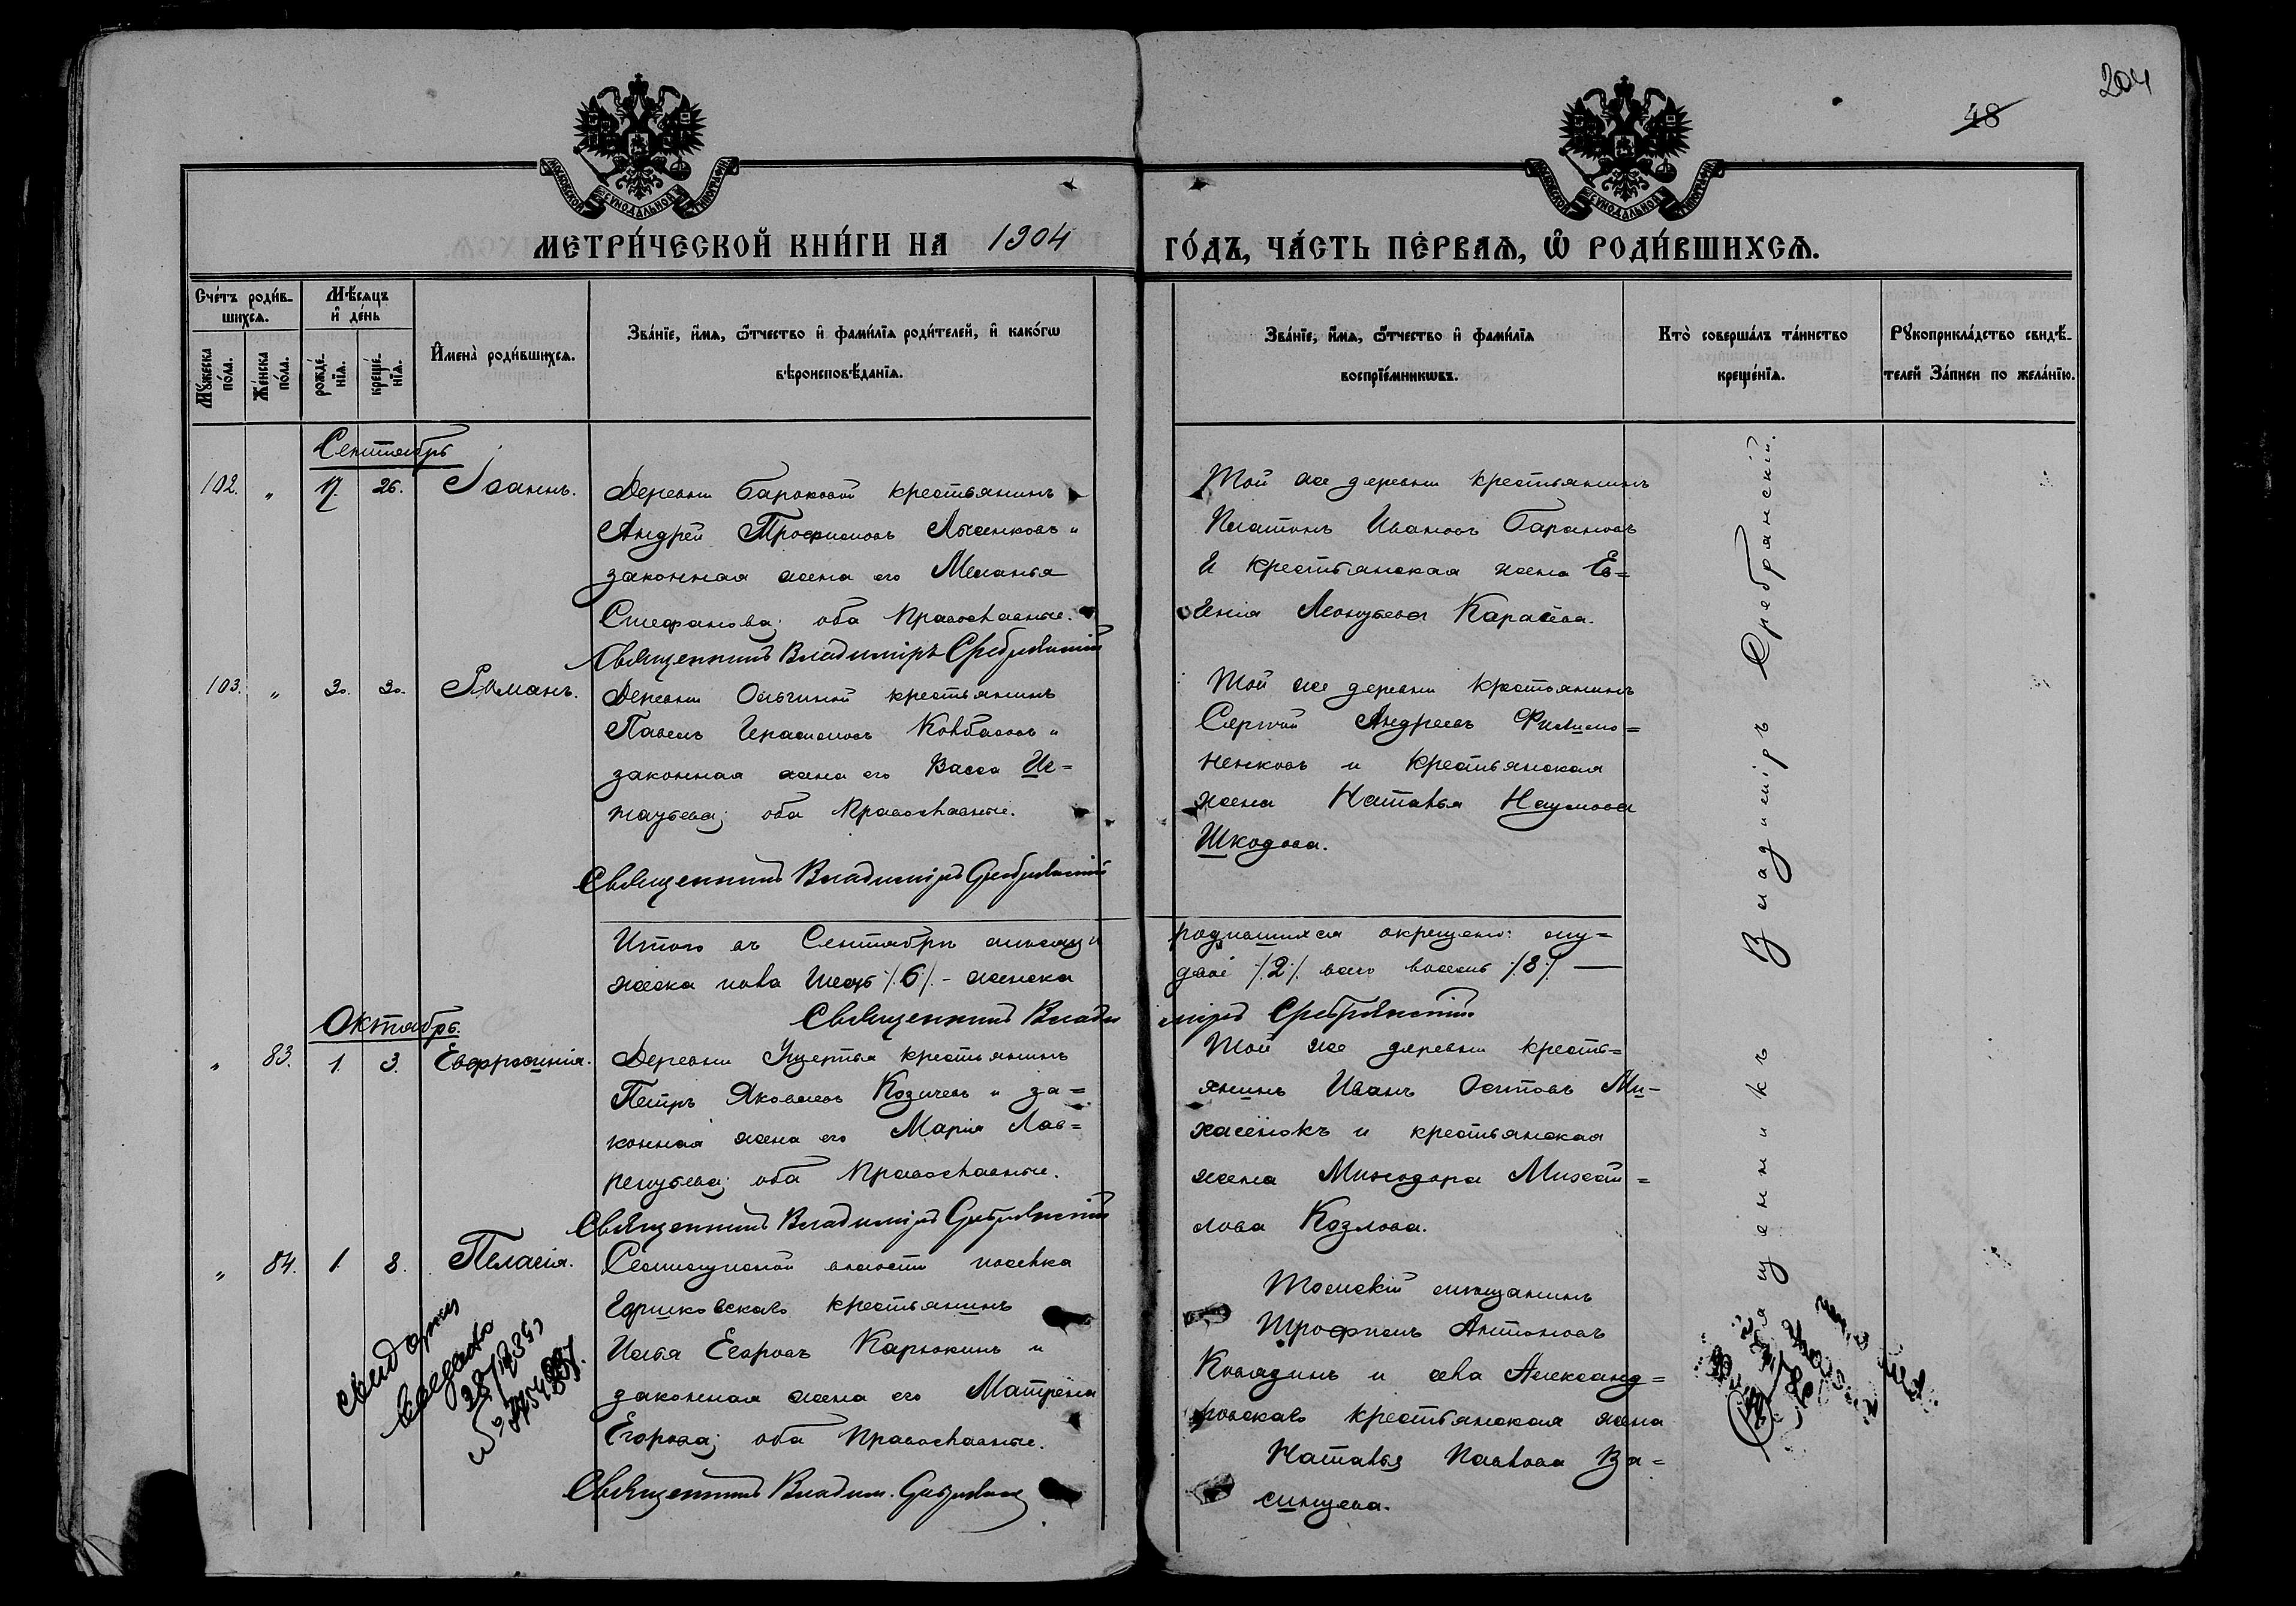 204
48
МОСКОВСКОЙ СѴНОДАЛЬНОЙ ТИПОГРАФІИ
МОСКОВСКОЙ СѴНОДАЛЬНОЙ ТИПОГРАФІИ
МЕТРИ́ЧЕСКОЙ КНИ́ГИ НА 1904 ГО́ДЪ, ЧА́СТЬ ПЕ́РВАѦ, Ѽ РОДИ́ВШИХСѦ.
Сче́тъ роди́в-
шихсѧ.
Мꙋ́жеска по́ла.
Же́нска по́ла.
Мѣ́сѧцъ
и҆ де́нь
рожде́-
нїѧ.
креще́-
нїѧ.
И҆мена̀ роди́вшихсѧ.
Зва́нїе, и҆́мѧ, ѻ҆́тчество и҆ фами́лїѧ роди́телей, и҆ како́гѡ
вѣроисповѣ́данїѧ.
Зва́нїе, и҆́мѧ, ѻ҆́тчество и҆ фами́лїѧ
воспрїе́мникѡвъ.
Кто̀ соверша́лъ та́инство
креще́нїѧ.
Рꙋкоприкла́дство свидѣ́-
телей За́писи по жела́нїю.
Сентябрь
102. " 17. 26. Іоаннъ.
Деревни крестьянинъ
Андрей Трофимовъ Лысенковъ и
законная жена его Меланья
Стефанова; оба православные.
Священникъ Владиміръ Сребрянскій
Той же деревни крестьянинъ
Платонъ Ивановъ Барановъ
и крестьянская жена Ев=
генія Леонтьева Карасева.
103. " 30. 30. Романъ.
Деревни крестьянинъ
Павелъ Герасимовъ Колбасовъ и
законная жена его Васса Иг=
натьева; оба православные.
Священникъ Владиміръ Сребрянскій
Той же деревни крестьянинъ
Сергѣй Андреевъ Филимо=
ненковъ и крестьянская
жена Наталья Наумова
Шкодова.
Итого въ Сентябрѣ мѣсяцѣ родившихся окрещено: му=
жеска пола шесть /6/. - женска двѣ /2/. всего восемь /8/. —
Священникъ Владиміръ Сребрянскій
Октябрь.
" 83. 1. 3. Евфросинія.
Деревни крестьянинъ
Петръ Яковлевъ Козичевъ и за=
конная жена его Марія Лав=
рентьева; оба православные.
Священникъ Владиміръ Сребрянскій
Той же деревни кресть=
янинъ Иванъ Осиповъ Ми-
хасёнокъ и крестьянская
жена Минодора Михай=
лова Козлова.
" 84. 1 8. Пелагія.
волости поселка
крестьянинъ
Илья Егоровъ Карюкинъ и
законная жена его Матрена
Егорова; оба православные.
Священникъ Владим. Сребрянск
Томскій мѣщанинъ
Трофимъ Антоновъ
Колядинъ и села Александ=
ровскаго крестьянская жена
Наталья Павлова Ва=
синцева.
Священникъ Владиміръ Сребрянскій.